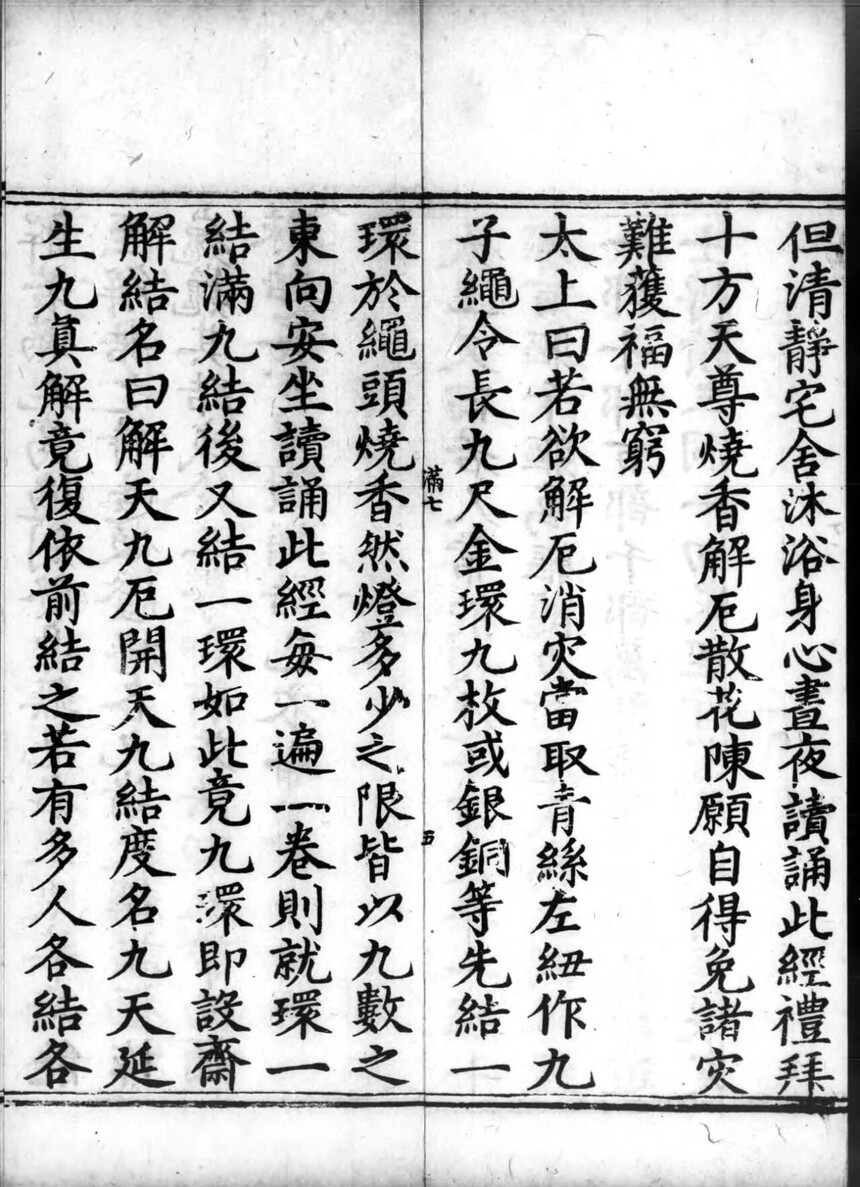 但清靜宅舍沐浴身心晝夜讀誦此經禮拜
十方天尊燒香解厄散花陳願自得免諸灾
難獲福無窮
太上曰若欲解厄消灾當取青絲左紐作九
子繩令長九尺金環九枚或銀銅等先結一
滿七
五
環於繩頭燒香然燈多少之限皆以九數之
東向安坐讀誦此經每一遍一卷則就環一
結滿九結後又結一環如此竟九環即設齋
解結名曰解天九厄開天九結度名九天延
生九真解竟復依前結之若有多人各結各